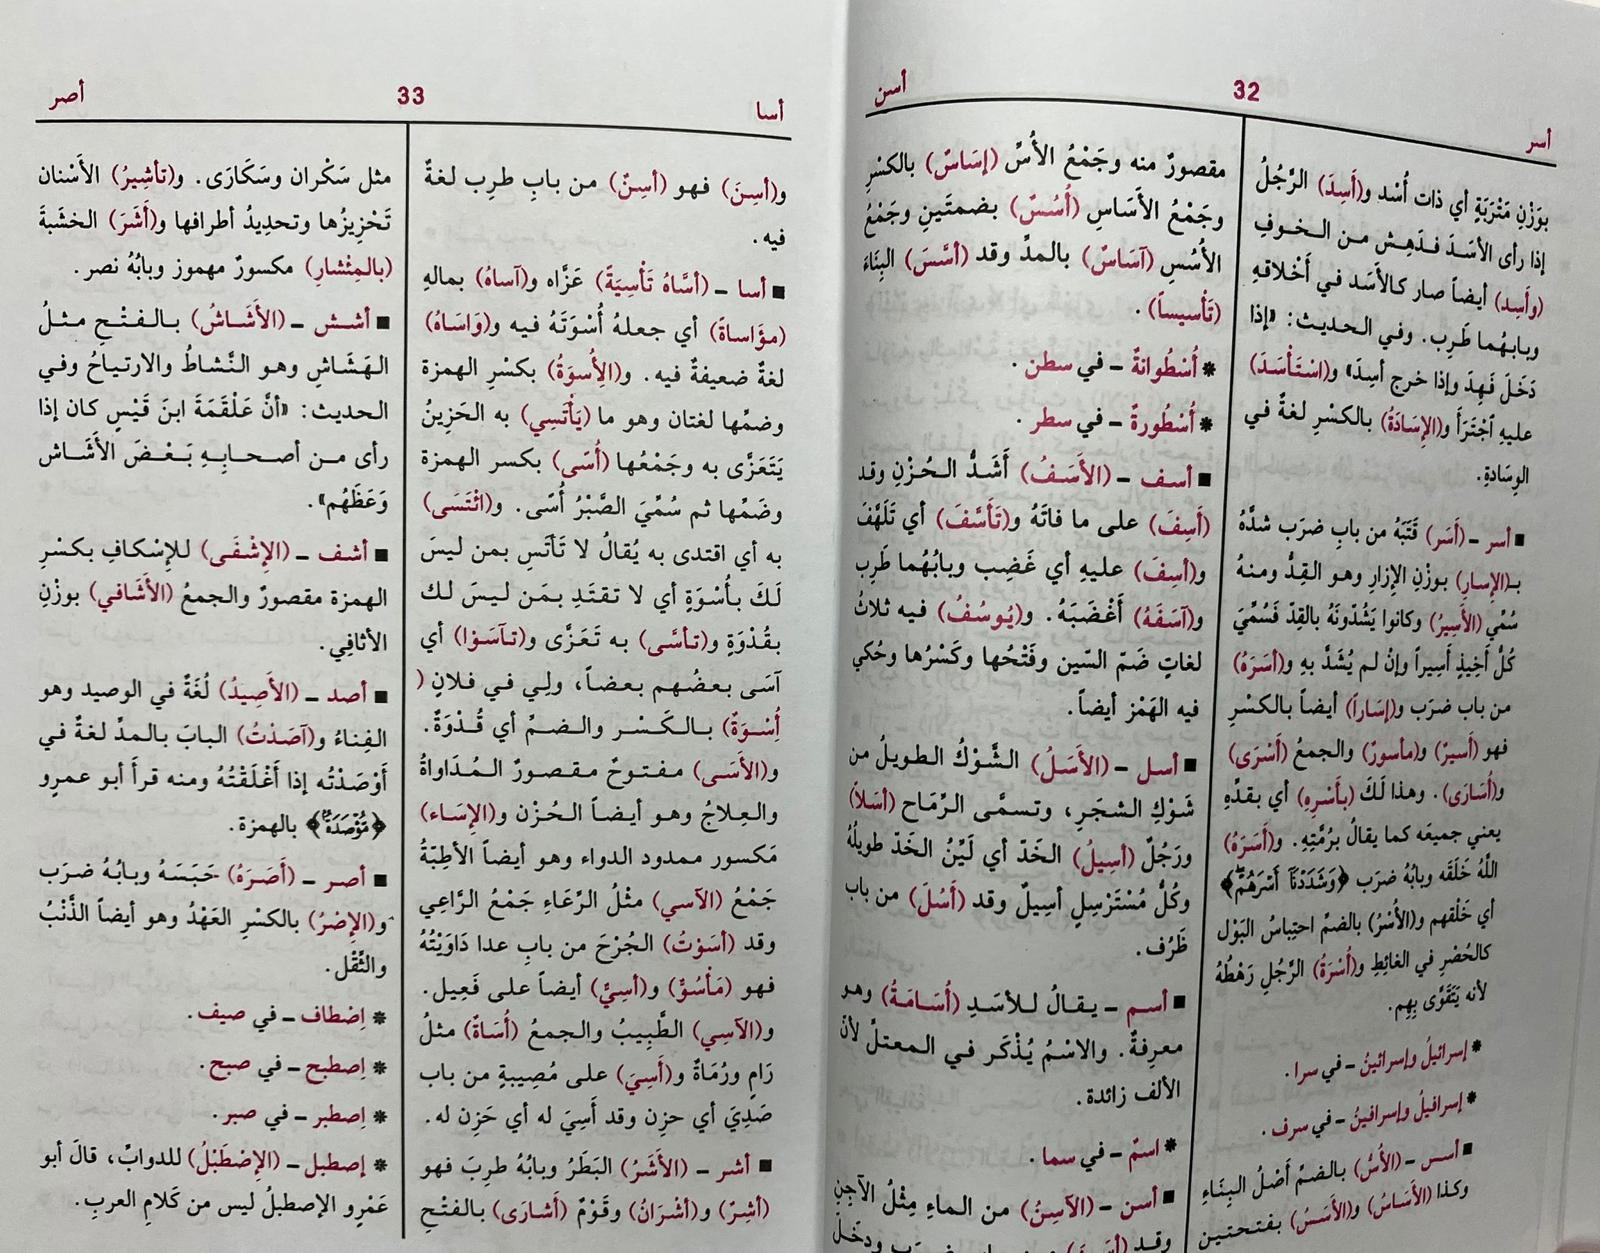 أسر
32
أسن
بوَزْنِ مَتْرَبَةٍ أي ذات أُسْد و(أَسِدَ) الرَّجُلُ
إذا رأى الأسَدَ فـدَهِـش مـن الـخـوفِ
(وأَسِد) أيضاً صار كالأسَد في أَخْلاقهِ
وبابـهُما طَرِب. وفي الـحـديث: «إذا
دَخَلَ فَهِدَ وإذا خرج أسِدَ» و(اسْتَأْسَدَ)
عليهِ اجْتَرَأَ و(الإسَادَةُ) بالكسْرِ لغةٌ في
الوِسَادةِ.
■ أسر ـ (أَسَر) قَتَبَهُ من بابِ ضرَب شدَّهُ
بـ(الإسارِ) بوزْنِ الإزارِ وهو القِدُّ ومنـهُ
سُمِّي (الأَسِيرُ) وكانوا يَشُدّونَهُ بالقِدّ فَسُمِّيَ
كُلُّ أَخِيذٍ أَسِيراً وإنْ لم يُشَدَّ بهِ و(أسَرَهُ)
من باب ضرَب و(إسَاراً) أيضاً بالكسْرِ
فهو (أَسيرٌ) و(مأسورٌ) والجمعُ (أَسْرَى)
و(أُسَارَى). وهذا لَكَ (بأَسْرِهِ) أي بقدِّهِ
يعني جميعَه كما يقالُ برُمَّتِهِ. و(أَسَرَهُ)
اللَّهُ خَلَقَه وبابُهُ ضرَب ﴿وَشَدَدْنَآ أَسْرَهُمْ﴾
أي خَلْقهم و(الأُسْرُ) بالضمّ احتِباسُ البَوْل
كالحُصْرِ في الغائِطِ و(أُسْرَةُ) الرَّجُلِ رَهْطُهُ
لأنه يَتَقَوَّى بِهِم.
* إسرائيلُ وإسرائينُ ـ في سرا.
* إسرافيلُ وإسرافينُ ـ في سرف.
■ أسـس ـ (الأُسُّ) بالضمِّ أَصْلُ البِنَاءِ
وكذا (الأَسَاسُ) و(الأَسَسُ) بفتحتين
مقصورٌ منه وجَمْعُ الأُسِّ (إسَاسٌ) بالكسْرِ
وجَمْعُ الأَسَاسِ (أُسُسٌ) بضمتَينِ وجَمْعُ
الأُسُسِ (آسَاسٌ) بالمدِّ وقد (أَسَّسَ) البِنَاءَ
(تَأْسيساً).
* أُسْطُوانةٌ ـ في سطن.
* أُسْطُورةٌ ـ في سطر.
■ أسـف ـ (الأَسَـفُ) أَشَـدُّ الـحُـزْنِ وقد
(أَسِفَ) على ما فاتَهُ و(تَأَسَّفَ) أي تَلَهَّفَ
و(أَسِفَ) عليهِ أي غَضِب وبابُهُما طَرِب
و(آسَفَهُ) أَغْضَبَـهُ. و(يُوسُفُ) فيه ثلاثُ
لغاتٍ ضَمّ السّين وفَتْحُها وكَسْرُها وحُكي
فيه الهَمْز أيضاً.
■ أسل ـ (الأَسَلُ) الـشَّوْكُ الطويلُ من
شَوْكِ الشجَرِ، وتسمَّى الرِّمَاح (أَسَلاً)
ورَجُلٌ (أَسِيلُ) الخَدّ أي لَيِّنُ الخَدّ طويلُهُ
وكُلُّ مُسْتَرْسِلٍ أسِيلٌ وقد (أَسُلَ) من باب
ظَرُف.
■ أسـم ـ يـقـالُ لـلأسَـدِ (أُسَـامَـةُ) وهو
معرِفةٌ. والاسْمُ يُذْكَر في المعتلّ لأنّ
الألف زائدة.
* اسمٌ ـ في سما.
■ أسن ـ (الآسِنُ) من الماءِ مِثْلُ الآجِنِ
أسا
33
أصر
و(أَسِنَ) فهو (أَسِنٌ) من بابِ طرِب لغةٌ
فيه.
■ أسا ـ (أَسَّاهُ تَأْسِيَةً) عَزَّاه و(آساهُ) بمالهِ
(مؤَاساةً) أي جعلهُ أُسْوَتَهُ فيه و(وَاسَاهُ)
لغةٌ ضعيفةٌ فيه. و(الأُِسوَةُ) بكسْرِ الهمزة
وضمِّها لغتان وهو ما (يَأْتَسِي) به الحَزِينُ
يَتَعَزَّى به وجَمْعُها (أُسًى) بكسر الهمزة
وضَمِّها ثم سُمِّيَ الصَّبْرُ أُسًى. و(ائْتَسَى)
به أي اقتدى به يُقالُ لا تَأْتَسِ بمن ليسَ
لَكَ بـأُسْوَةٍ أي لا تقتَدِ بمَن ليسَ لك
بقُدْوَةٍ و(تأسَّى) به تَعَزَّى و(تـآسَوْا) أي
آسَى بعضُـهم بعضاً، ولِي في فلانٍ (
أُِسْـوَةٌ) بـالـكَـسْـر والـضـمِّ أي قُـدْوَةٌ.
و(الأَسَـى) مفـتـوحٌ مـقـصورٌ الـمُـدَاواةُ
والعِلاجُ وهـو أيضـاً الحُزْن و(الإسَاء)
مَكسور ممدود الدواء وهو أيضاً الأَطِبَّةُ
جَمْعُ (الآسي) مثْلُ الرِّعَاءِ جَمْعُ الرَّاعِي
وقد (أسَوْتُ) الجُرْحَ من بابِ عدا دَاوَيْتُهُ
فهو (مَأْسُوٌّ) و(أسِيٌّ) أيضاً على فَعِيل.
و(الآسِي) الطَّبِيبُ والجمعُ (أُسَاةٌ) مثلُ
رَامٍ ورُمَاةٌ و(أَسِيَ) على مُصِيبةٍ من باب
صَدِيَ أي حزِن وقد أَسِيَ له أي حَزِن له.
■ أشر ـ (الأَشَرُ) البَطَرُ وبابُهُ طرِبَ فهو
(أَشِرٌ) و(أَشْرَانُ) وقَوْمٌ (أَشارَى) بالفتْحِ
مثل سَكْران وسَكَارَى. و(تأشِيرُ) الأَسْنان
تَحْزِيزُها وتحدِيدُ أطرافها و(أَشَرَ) الخشَبةَ
(بالمِئْشارِ) مكسورٌ مهموز وبابُهُ نصر.
■ أشـش ـ (الأَشَـاشُ) بـالـفـتْـحِ مـثـلُ
الـهَشَـاشِ وهـو النَّشاطُ والارتيـاحُ وفـي
الحديث: «أنَّ عَلْقَمَةَ ابنَ قَيْسٍ كان إذا
رأى مـن أصـحـابِـهِ بَـعْـضَ الأَشَـاش
وَعَظَهُم».
■ أشف ـ (الإشْفَى) للإسْكافِ بكسْرِ
الهمزة مقصورٌ والجمعُ (الأَشَافي) بوزْنِ
الأثافِي.
■ أصد ـ (الأَصِيدُ) لُغَةٌ في الوصيد وهو
الفِناءُ و(آصَدْتُ) البابَ بالمدِّ لغةٌ في
أَوْصَدْتُه إذا أَغْلَقْتُهُ ومنه قرأَ أبو عمرٍو
﴿مُّؤْصَدَةٌ﴾ بالهمزة.
■ أصر ـ (أَصَرَهُ) حَبَسَهُ وبابُهُ ضرَب
و(الإصْرُ) بالكسْرِ العَهْدُ وهو أيضاً الذَّنْبُ
والثِّقْل.
* اِصْطاف ـ في صيف.
* اِصطبح ـ في صبح.
* اِصطبر ـ في صبر.
* إصطبل ـ (الإصْطَبْلُ) للدوابِّ، قالَ أبو
عَمْرٍو الإصطبلُ ليس من كَلامِ العربِ.